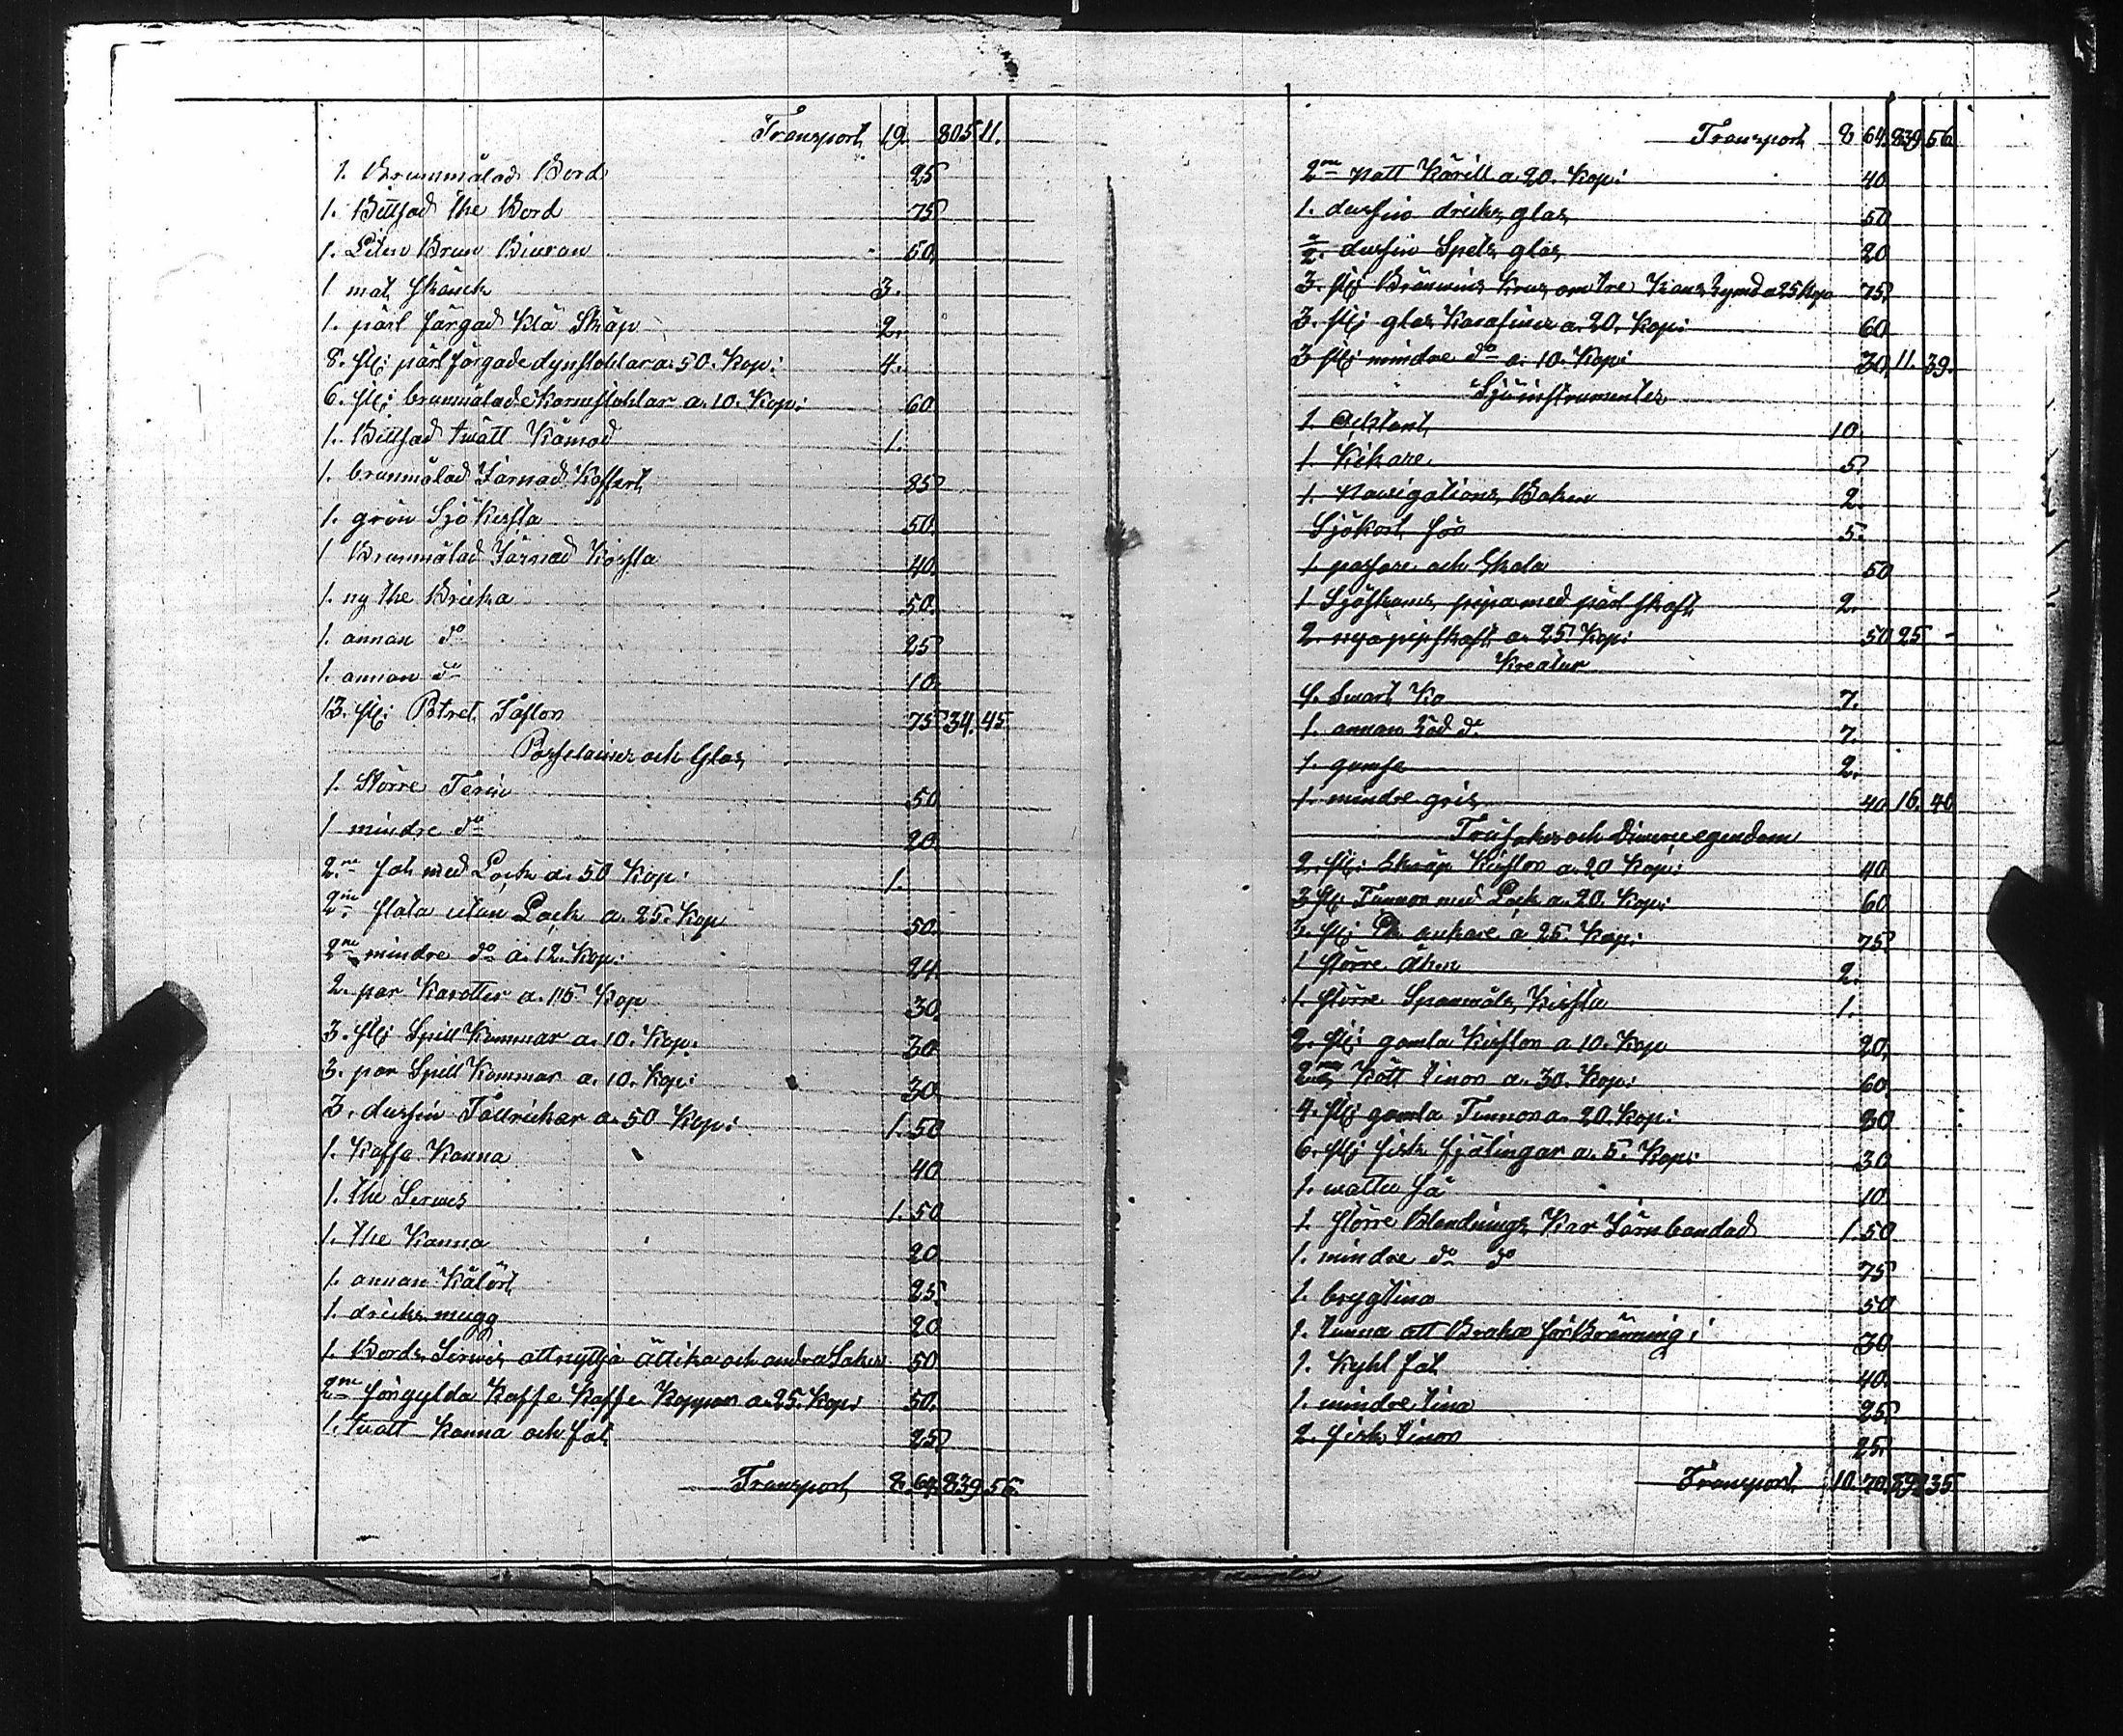 Transport 19. 805 11.
1. Brunmålad Bord 25
1. Bittsad the Bord 75
1. Liten Brun Biuron 50.
1 mat skänck 3.
1. pärl färgad Klä Skåp 2.
8. st: pärlfärgade dynstohlar a. 50. Kop: 4.
6. st: brunmålade Kornstohlar a. 10. Kop: 60
1. Bittsad twätt Kåmod 1.
1. brunmålad Järnad Koffert 85
1. grön Sjö Kista 50.
1 Brunmålad Järnad Kista 40.
1. ny the Bricka 50.
1. annan do 25
1. annan do 10.
13. st: Potret Taflor 75 34. 45
Porslainer och Glas
1. Större Terin 50
1 mindre do 20
2ne fat med Lock a. 50 Kop: 1.
2ne flata utan Lock a. 25. Kop 50.
2ne mindre do a. 12. Kop: 24
2. par Karotter a. 15 Kop 30.
3. st: Spill Kommar a. 10. Kop: 30
3. par Spill Kommar a. 10. Kop: 30
3. dussin Tallrickar a. 50 Kop: 1. 50
1. Kaffe Kanna 40
1. the Servis 1. 50
1. the Kanna 20
1. annan Kålört 25.
1. dricks mugg 20
1. Bords Servis att nyttja ättika och andra Saker 50
2ne förgylda Kaffe Kaffe Koppar a. 25. Kop: 50.
1. twatt Kanna och fat 25
Transport 8. 64. 839 56.
Transport 8 64. 839 56
2ne natt Kärill a 20. Kop: 40
1. dussin dricks glas 50
1/2. dussin Spets glas 20
3. st: Bränwins Krus om tre Kans Rymd a 25 Kop 75.
3. st: glas Karafiner a. 20. Kop: 60
3 st: mindre do a. 10. Kop: 30 11. 39.
Sjöinstrumenter
1. Ocktant 10.
1. Kikare 5.
1. Navigations Boken 2.
Sjökort för 5.
1. passare och Skala 50
1 Sjöskums pipa med pärl skaft 2.
2. nya pipskaft a. 25 Kop: 50 25 -
Kreatur
1. Swart Ko 7.
1. annan Röd do 7.
1. gumse 2.
1. mindre gris 40 16. 40
Träsaker och Diverse egendom
2. st: Skräp Kistor a. 20 Kop: 40
3 st: Tunnor med Lock a. 20. Kop: 60
3. st: ankare a 25. Kop: 75
1 större 2.
1. större Spanmåls Kista 1.
2. st: gamla Kistor a 10. Kop 20.
2ne Kött tinor a. 30. Kop: 60.
4. st: gamla Tunnor a. 20. Kop: 80
6. st: fisk fjälingar a. 5. Kop: 30
1. wattu så 10
1. större Blandnings Kar Järnbandad 1. 50
1. mindre do do 75
1. brygtina 50
1. tunna att Braka förbränning i 30
1. Kyhl fat 40.
1. mindre tina 25
2. fisk tinor 25.
Transport 10. 70. 892 35